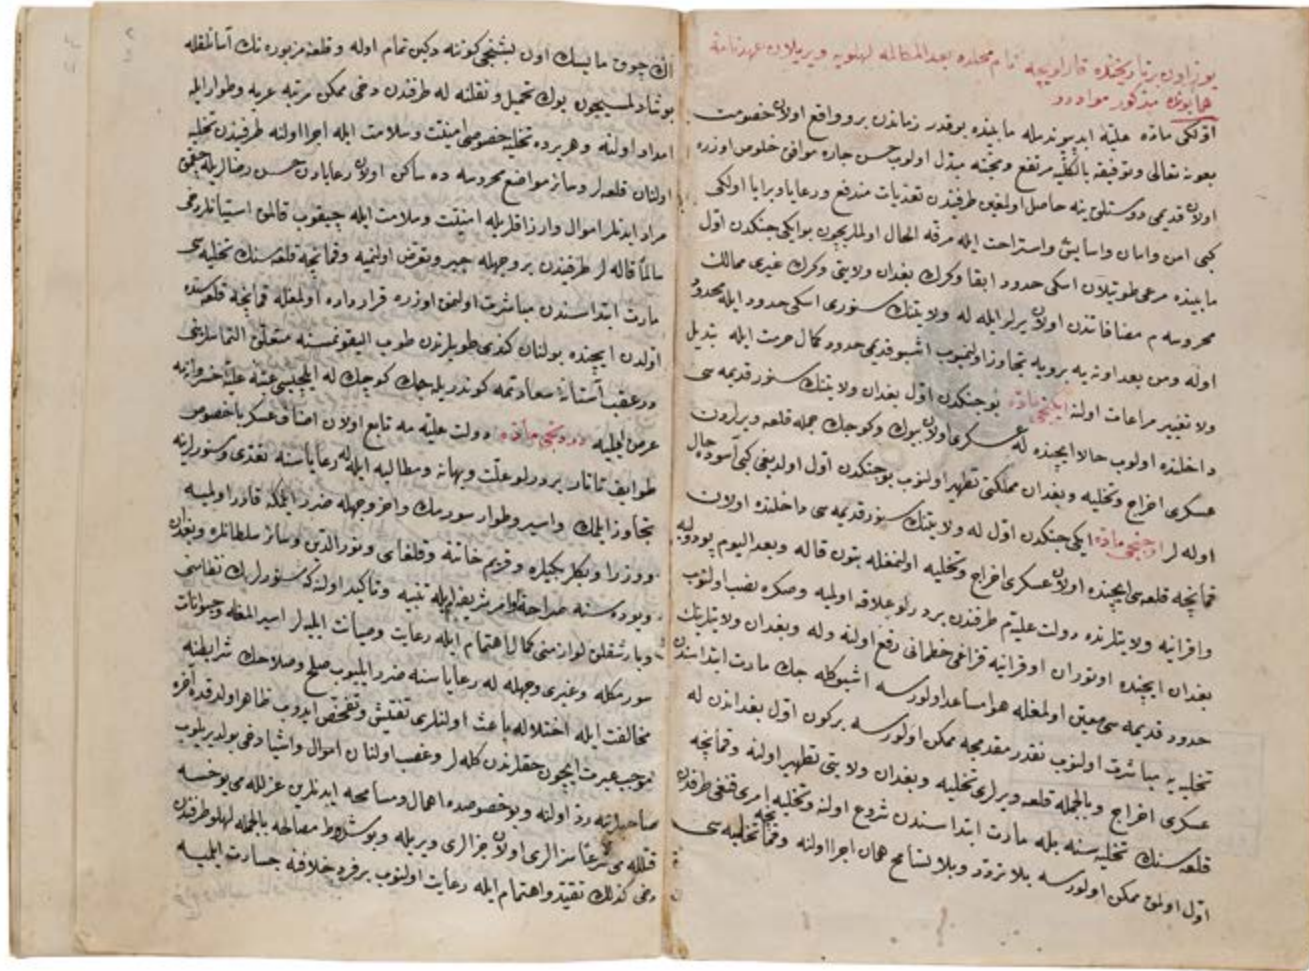 يوز اون بر تاريخنده قارلويچه نام محلده بعد المكالمه لهلويه ويريلان عهدنامهٔ
همايونده مذكور مواددر
اولكى ماده عليهٔ ايد پيوندمله مابينده بوقدر زماندن برو واقع اولان خصومت
بعونه تعالى وتوفيقه بالكليه مرتفع ومحبته مبدل اولوب حسن جاره موافق خلوص اوزره
اولان قديمى دوستلق ينه حاصل اولمغين طرفيندن تعديات مندفع ورعايا وبرايا اولكى
كبى امن وامان واسايش واستراحت ايله مرفه الحال اولملريچون بو ايكى جنكدن اول
مابينده مرعى طوتيلان اسكى حدود ابقا وكرك بغدان ولايتى وكرك غيرى ممالك
محروسه م مضافاتندن اولان يرلر ايله له ولايتنك سنورى اسكى حدود ايله محدود
اوله ومن بعد اوته يه برويه تجاوز اولنميوب اشبو قديمى حدود كمال حرمت ايله تبديل
ولا تغيير مراعات اولنه ايكنجى ماده بو جنكدن اول بغدان ولايتنك سنور قديمه سى
داخلنده اولوب حالا ايچنده له عسكرى اولان بيوك وكوچك جمله قلعه ويرلردن
عسكرى اخراج وتخليه وبغدان مملكتى تطهير اولنوب بو جنكدن اول اولديغى كبى آسوده حال
اوله لر اوچنجى ماده ايكى جنكدن اول له ولايتنك سنور قديمه سى داخلنده اولان
قمانچه قلعه سى ايچنده اولان عسكرى اخراج وتخليه اولنمغله بتون قاله وبعد اليوم پودوليه
واقرانيه ولايتلرنده دولت عليه م طرفندن بر درلو علاقه اولميه وصكره نصب اولنوب
بغدان ايچنده اوتوران اوقرانيه قزاغى خطمانى رفع اولنه وله وبغدان ولايتلرينك
حدود قديمه سى معين اولمغله هوا مساعد اولورسه اشبو كله جك مارت ابتداسندن
تخليه يه مباشرت اولنوب نقدر مقدمجه ممكن اولورسه بر كون اول بغداندن له
عسكرى اخراج وبالجمله قلعه ويرلرى تخليه وبغدان ولايتى تطهير اولنه وقمانچه
قلعه سنك تخليه سنه بله مارت ابتداسندن شروع اولنه وتخليه امرى قنغى طرفدن
اول اولمق ممكن اولورسه بلا تردد وبلا تسامح همان اجرا اولنه وقمانچه تخليه سى
الك چوق مايسك اون بشنجى كوننه دكين تمام اوله وقلعهٔ مزبوره نك آسانلقله
بوشادلمسيچون يوك تحميل ونقلنه له طرفندن دخى ممكن مرتبه عربه وطوار ايله
امداد اولنه وهر يرده تخليه خصوصى امنيت وسلامت ايله اجرا اولنه طرفيندن تخليه
اولنان قلعه لر وسائر مواضع محروسه ده ساكن اولان رعايادن حسن رضالريله چقمق
مراد ايدنلر اموال وارزاقلريله امنيت وسلامت ايله چيقوب قالمق استيانلر دخى
سالما قاله لر طرفيندن بر وجهله جبر وتعرض اولنميه وقمانچه قلعه سنك تخليه سى
مارت ابتداسندن مباشرت اولنمق اوزره قرارداده اولمغله قمانچه قلعه سنده
اولدن ايچنده بولنان كندى طوپلرندن طوپ اليقونمسنه متعلق التماسلرينى
در عقب آستانهٔ سعادتمه كوندريله جك كوچك له ايلچيسى عتبهٔ عليهٔ خسروانه مه
عرض ايليه دردنجى ماده دولت عليه مه تابع اولان اصناف عسكر باخصوص
طوايف تاتار بر درلو علت وبهانه ومطالبه ايله له رعاياسنه تعدى وسنورلرينه
تجاوز ايلمك واسير وطوار سورمك واخر وجهله ضرر ايتمكه قادر اولميه
ووزرا وبكلربكيلره وقريم خاننه وقلغاى ونور الدين وسائر سلطانلره وبغدان
ويوده سنه صراحة اوامر شريفه ايله تنبيه وتأكيد اولنه كه سنورلرك نظامنى
وبارشقلق لوازمنى كمال اهتمام ايله رعايت وصيانت ايليه لر اسير المغله وحيوانات
سورمكله وغيرى وجهله له رعاياسنه ضرر ايلميوب صلح وصلاحك شرايطنه
مخالفت ايله اختلاله باعث اولنلرى تفتيش وتفحص ايدوب ظاهر اولدقده آخره
موجب عبرت ايچون حقلرندن كله لر وغصب اولنان اموال واشيا دخى بولديريلوب
صاحبلرينه رد اولنه وبو خصوصده اهمال ومسامحه ايدنلرين عزلله مى يوخسه
قتلله مى شرعا سزالرى اولان جزالرى ويريله وبو شروط مصالحه بالجمله لهلو طرفندن
دخى كذلك تقيد واهتمام ايله رعايت اولنوب بر فرد خلافنه جسارت ايلميه